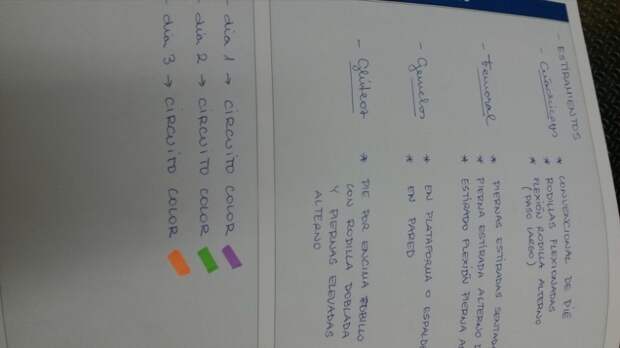 - ESTIRAMIENTOS
- Cuádriceps * CONVENCIONAL DE PIE
* RODILLAS FLEXIONADAS
* FLEXIÓN RODILLA ALTERNO
(PASO LARGO)
- Femoral * PIERNAS ESTIRADAS
* PIERNA ESTIRADA ALTERNO
* ESTIRADO FLEXIÓN PIERNA
- Gemelos * EN PLATAFORMA O
* EN PARED
- Glúteos * PIE POR ENCIMA
CON RODILLA DOBLADA
Y PIERNAS ELEVADAS
ALTERNO
- día 1 → CIRCUITO COLOR
- día 2 → CIRCUITO COLOR
- día 3 → CIRCUITO COLOR